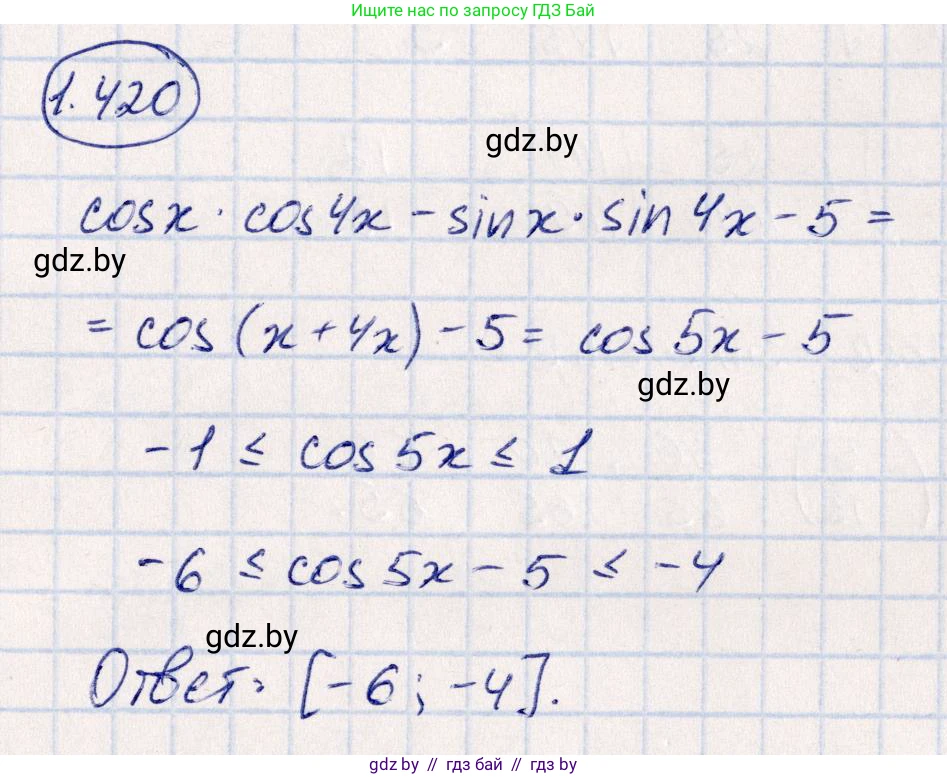 Ищите нас по запросу ГДЗ Бай
1.420
gdz.by
cosx · cos4x - sinx · sin4x - 5 =
gdz.by
= cos(x + 4x) - 5 = cos5x - 5
gdz.by
-1 ≤ cos5x ≤ 1
-6 ≤ cos5x - 5 ≤ -4
gdz.by
Ответ: [-6; -4].
gdz.by // гдз бай // гдз by